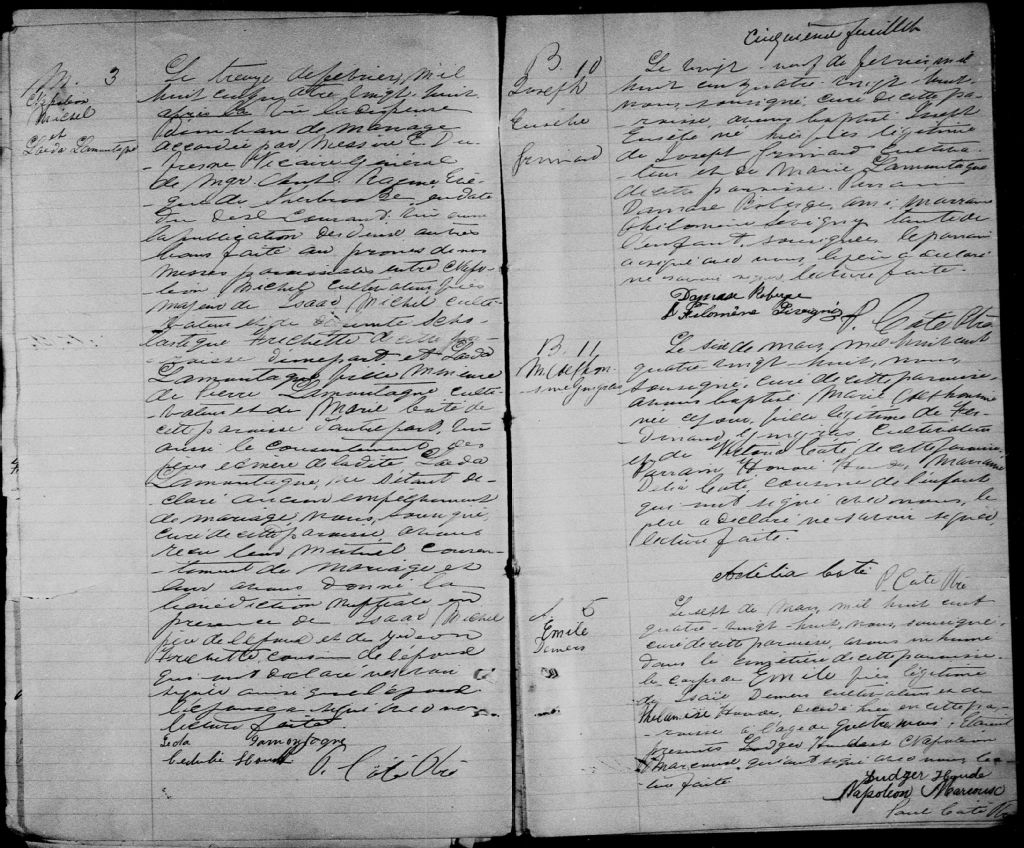 M. 3
Napoleon
Michel
et
Laeda Lamontagne
Le treize de fevrier, mil
huit cent quatre vingt-huit
après la vu la dispense
d'un ban de mariage
accordée par Messire E. Du-
fresne Vicaire Général
de Mgr. Ant. Racine, Evê-
que de Sherbrooke, en date
du de Courant, vu aussi
la publication des deux autres
bans faite au prônes de nos
messes paroissiales entre Napo-
léon Michel cultivateur, fils
majeur de Isaac Michel culti-
vateur et de Scho-
lastique Frechette de cette pa-
roisse d'une part et Laeda
Lamontagne, fille mineure
de Pierre Lamontagne culti-
vateur et de Marie Coté de
cette paroisse d'autre part, vu
aussi le consentement des
père et mère de la dite Laeda
Lamontagne, ne s'étant dé-
claré aucun empêchement
de mariage, nous, soussigné,
curé de cette paroisse, avons
reçu leur mutuel consen-
tement de mariage et
leur avons donné la
bénédiction nuptiale en
présence de Isaac Michel
père de l'époux et de Gédéon
Frechette, cousin de l'époux
qui ont déclaré ne savoir
signer ainsi que l'époux
l'épouse a signé avec nous
lecture faite
Leda Lamontagne
P. Côté Ptre
Cinquième feuillet
B 10
Joseph
Eusèbe
Le vingt-neuf de fevrier mil
huit cent quatre vingt huit
nous, soussigné, curé de cette pa-
roisse, avons baptisé Joseph
Eusèbe né hier fils légitime
de Joseph cultiva-
teur et de Marie Lamontagne
de cette paroisse. Parrain
Damase Roberge, ami, marraine
Philomène Sevigny tante de
l'enfant, soussignés, le parrain
a signé avec nous, le père a déclaré
ne savoir signer, lecture faite.
Damase Roberge
Filomène Sevigny
P. Côté Ptre
B. 11
Le six de mars, mil huit cent
quatre-vingt-huit, nous,
soussigné, curé de cette paroisse,
avons baptisé Marie
née ce jour, fille légitime de Fer-
dinand Gingras cultivateur
et de Coté de cette paroisse,
Parrain, Honoré Houde, Marraine
Delia Coté, cousine de l'enfant
qui ont signé avec nous, le
père a déclaré ne savoir signer
lecture faite.
Adélia Coté
P. Côté Ptre
S 5
Emile
Demers
Le sept de mars, mil huit cent
quatre-vingt-huit, nous, soussigné,
curé de cette paroisse, avons inhumé
dans le cimetière de cette paroisse
le corps de Emile fils légitime
de Isaïe Demers cultivateur et de
Houde, décédé hier en cette pa-
roisse à l'age de quatre mois, Etaient
présents Ludger Houde et Napoléon
Marcoux, qui ont signé avec nous lec-
ture faite
Ludger Houde
Napoleon Marcoux
Paul Côté Ptre